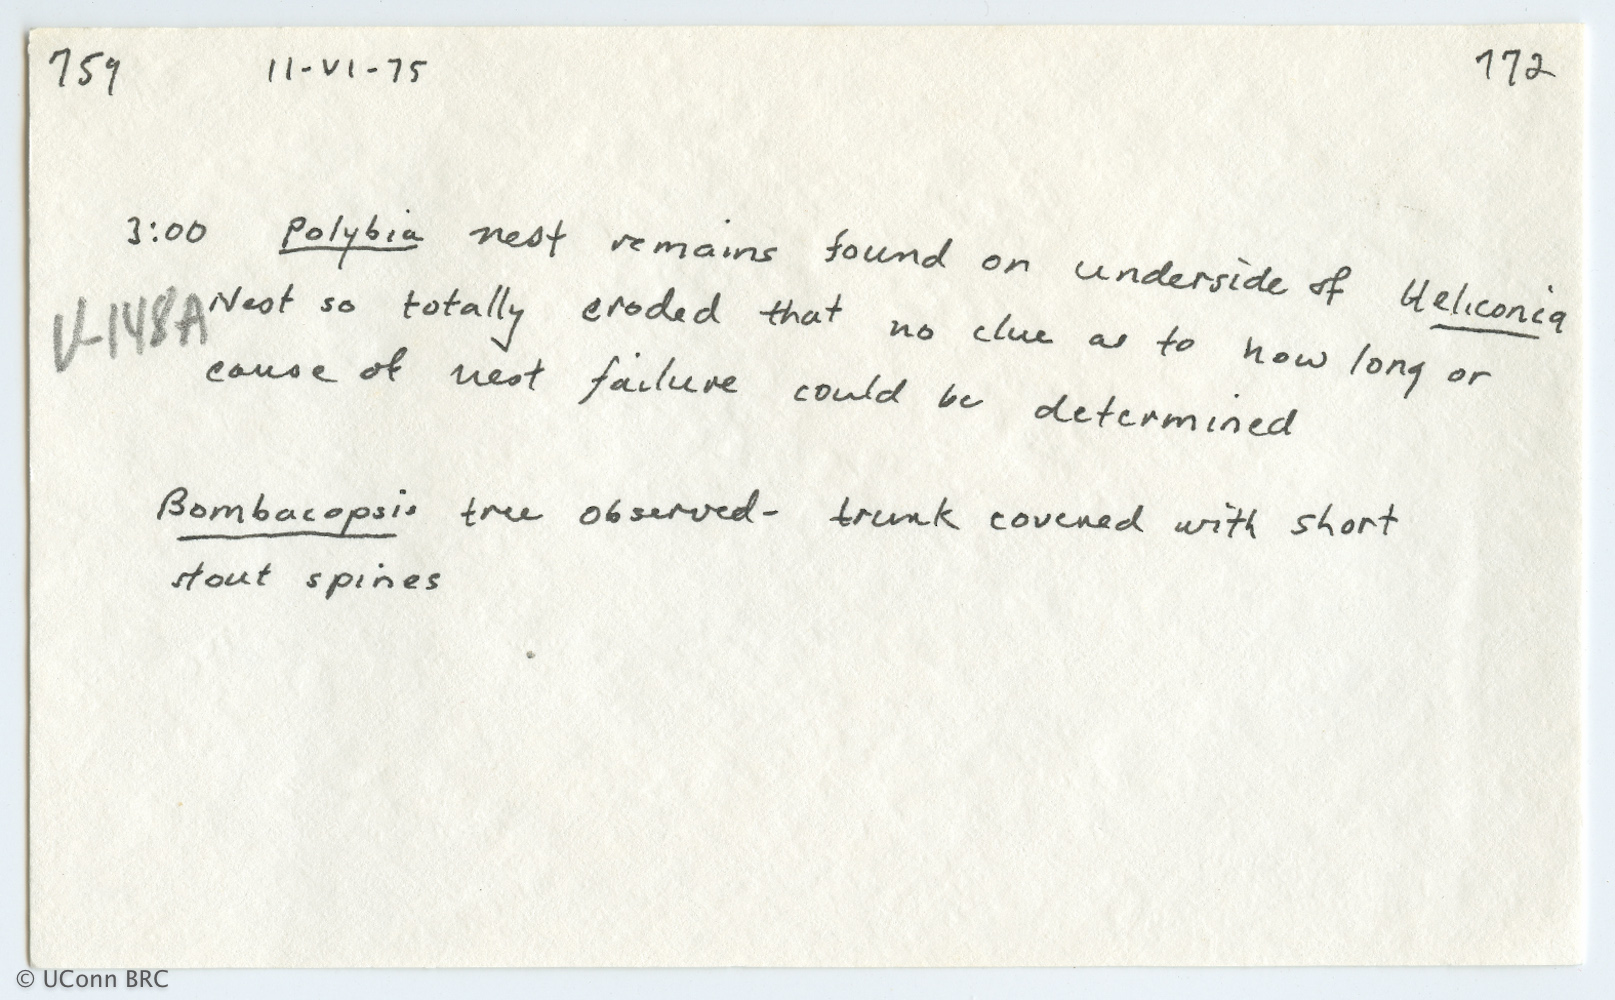 759 11-VI-75 172
3:00 Polybia nest remains found on underside of Heliconia
V-148A Nest so totally eroded that no clue as to how long or
cause of nest failure could be determined
Bombacopsis tree observed- trunk covered with short
stout spines
© UConn BRC